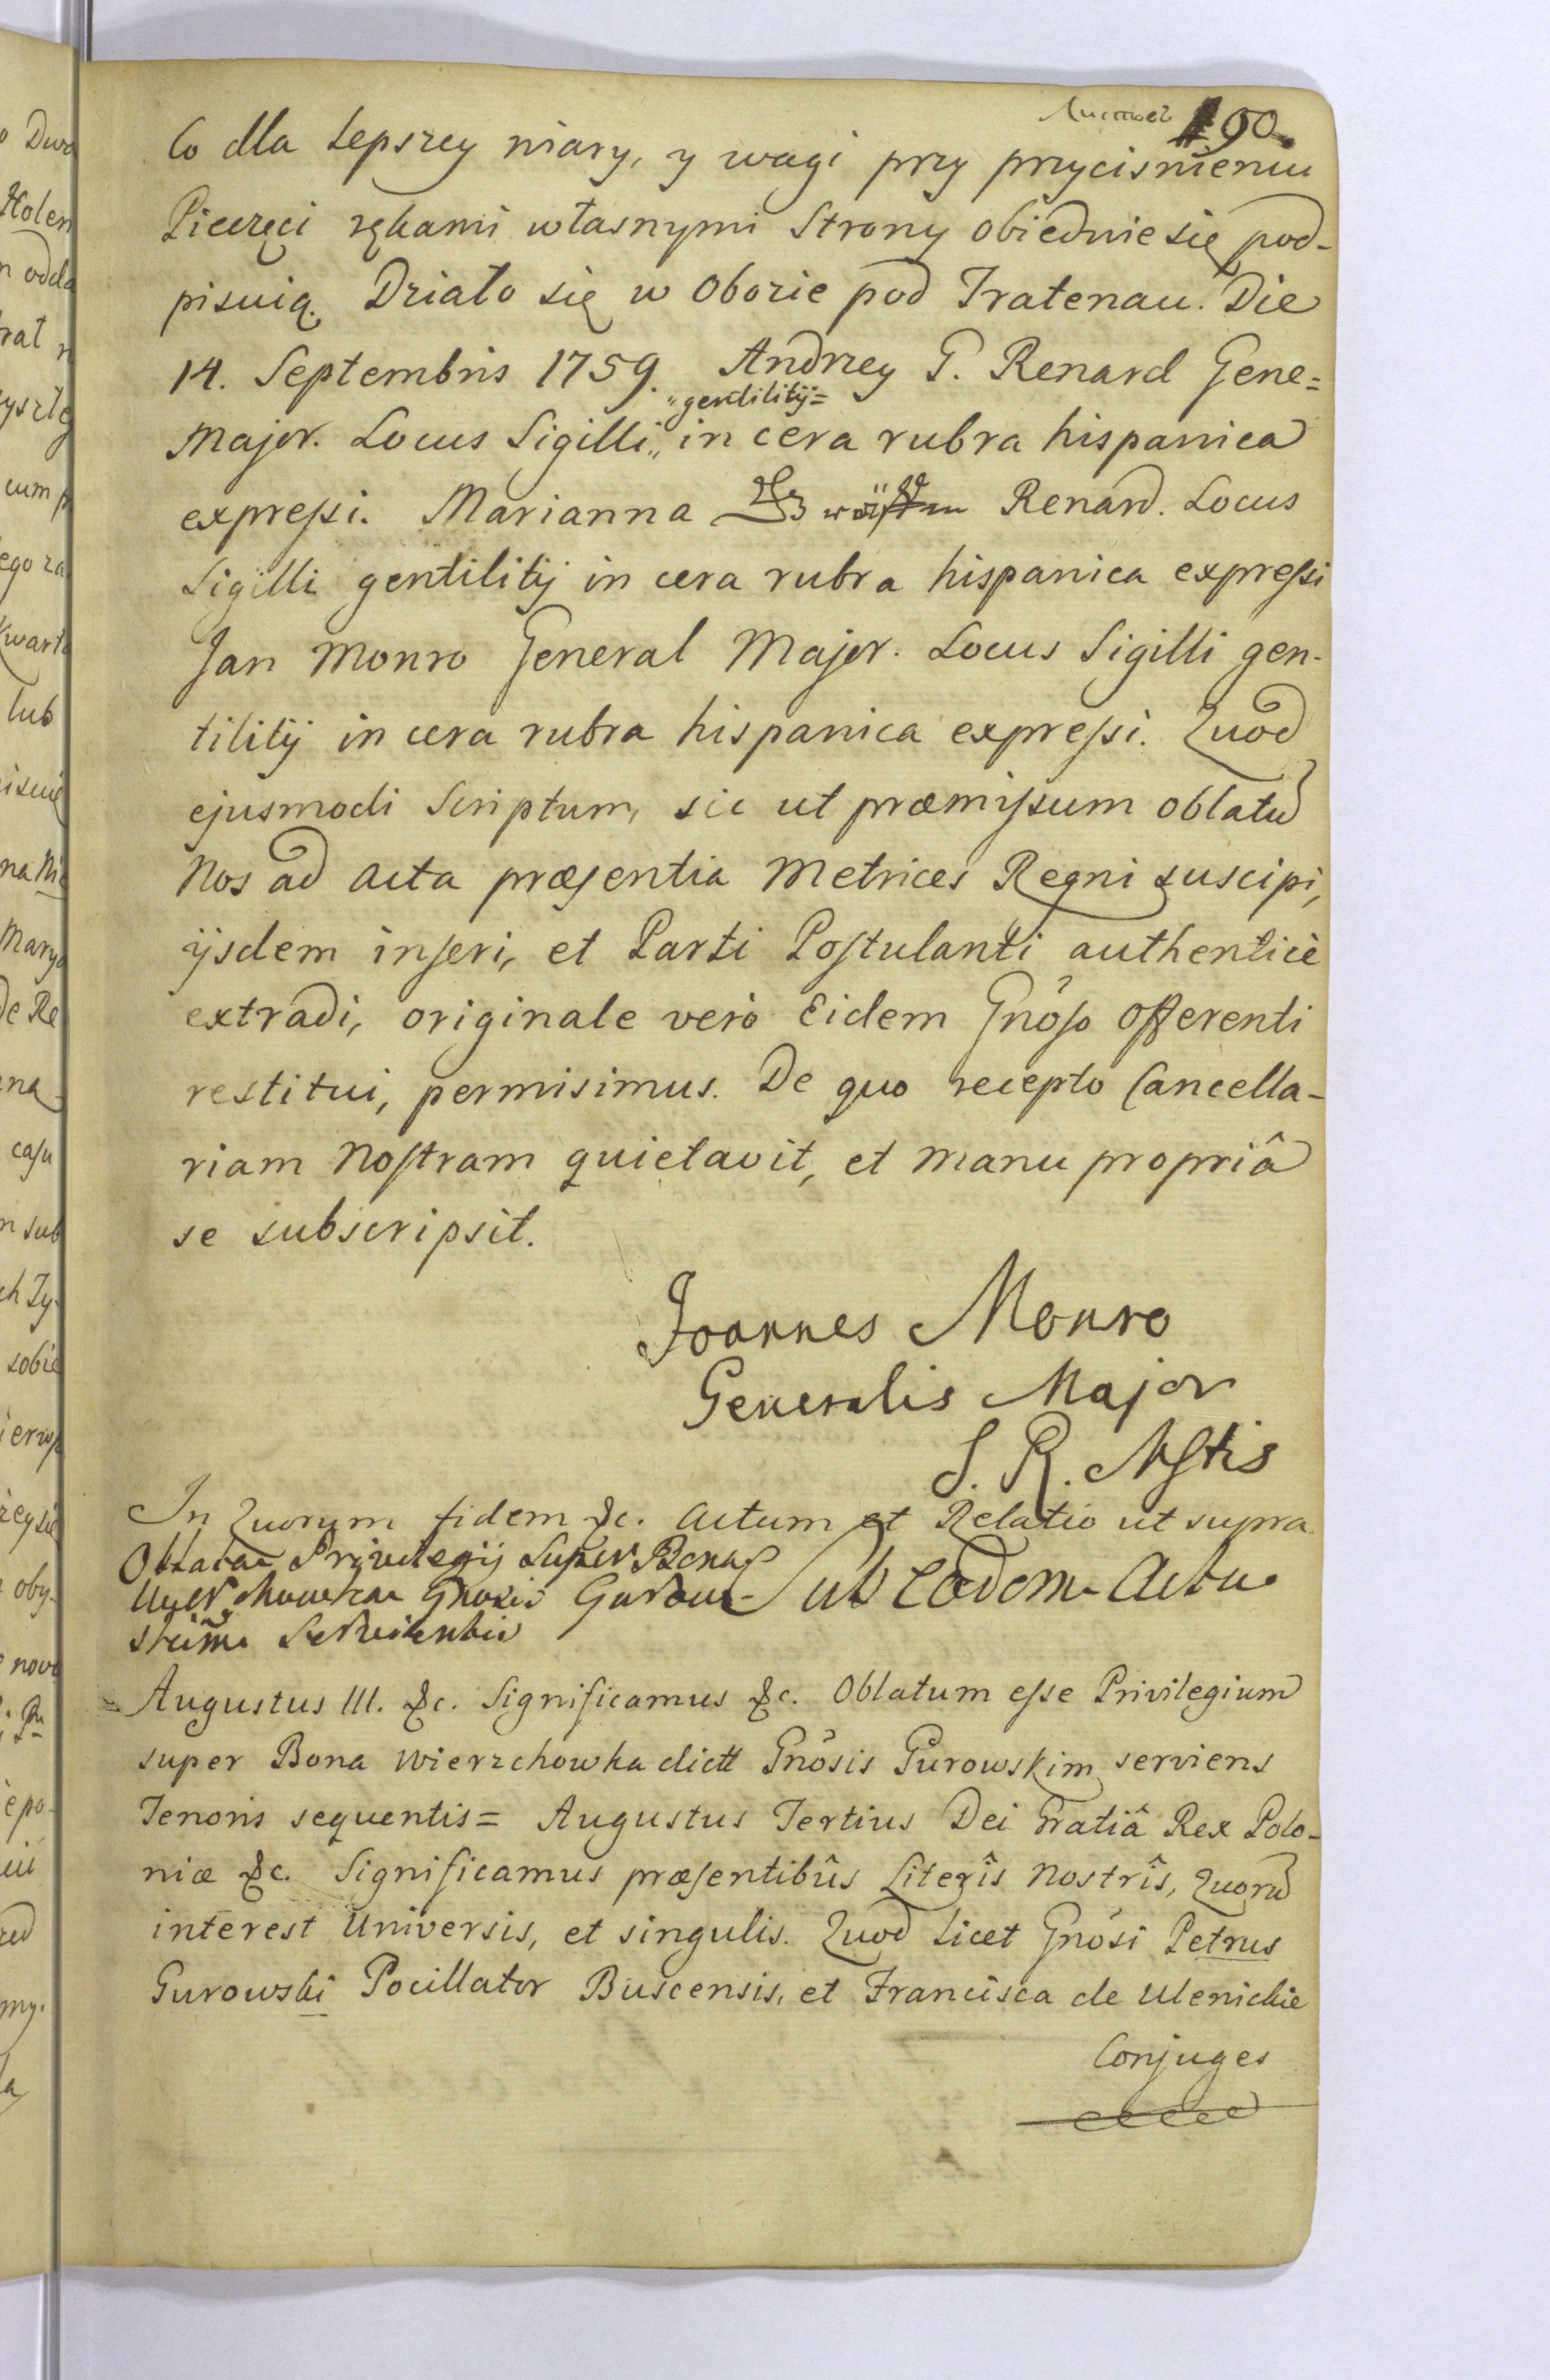 Листовъ 190.
Co dla Lepszey wiary, y wagi przy przycisnieniu
Pieczęci rękami własnymi Strony obiedwie się pod-
pisuią. Działo się w Obozie pod Tratenau. Die
14. Septembris 1759. Andrzey G. Renard Gene=
Major. Locus Sigilli „gentilitij= in cera rubra hispanica
expreſsi. Marianna Renard. Locus
Sigilli gentilitij in cera rubra hispanica expreſsi
Jan Monro General Major. Locus Sigilli gen-
tilitij in cera rubra hispanica expreſsi. Quod
ejusmodi Scriptum, sic ut præmiſsum oblatu
Nos ad Acta præſentia Metrices Regni suscipi,
ijsdem inſeri, et Parti Poſtulanti authenticè
extradi, originale verò Eidem Gnõſo Offerenti
restitui, permisimus. De quo recepto Cancella-
riam Noſtram quietavit, et manu propriâ
se subscripsit.
Joannes Monro
Generalis Major
S. R. Mſtis
In Quorum fidem &c. Actum et Relatio ut supra
Oblatae Privilegij Super Bona
Wierzchowka Gnosis Gurow-
skim Servientis
Sub Eodem Actu
Augustus III. &c. Significamus &c. Oblatum eſse Privilegium
super Bona Wierzchowka dictt Gnõsis Gurowskim serviens
Tenoris sequentis= Augustus Tertius Dei Gratiâ Rex Polo-
niæ &c. Significamus præſentibûs Literîs Nostrîs, Quoru
interest Universis, et singulis. Quod licet Gnõsi Petrus
Gurowski Pocillator Buscensis, et Francisca de Ulenickie
Conjuges